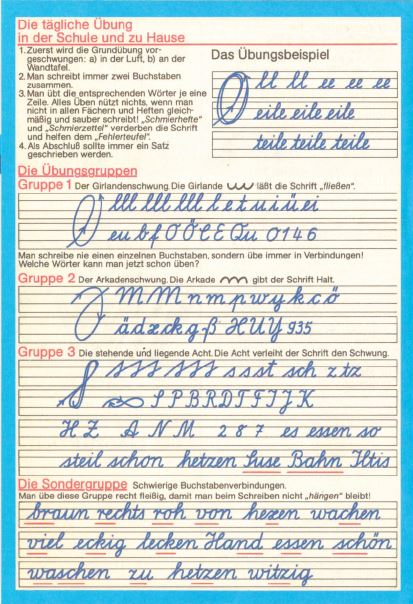 Die tägliche Übung
in der Schule und zu Hause
1. Zuerst wird die Grundübung vor-
geschwungen: a) in der Luft, b) an der
Wandtafel.
2. Man schreibt immer zwei Buchstaben
zusammen.
3. Man übt die entsprechenden Wörter je eine
Zeile. Alles Üben nützt nichts, wenn man
nicht in allen Fächern und Heften gleich-
mäßig und sauber schreibt! „Schmierhefte"
und „Schmierzettel" verderben die Schrift
und helfen dem „Fehlerteufel".
4. Als Abschluß sollte immer ein Satz
geschrieben werden.
Das Übungsbeispiel
ll ll ee ee ee
eile eile eile
teile teile teile
Die Übungsgruppen
Gruppe 1 Der Girlandenschwung. Die Girlande läßt die Schrift „fließen".
lll lll lll l e t u i ü ei
eu b f O Ö C E Qu 0 1 4 6
Man schreibe nie einen einzelnen Buchstaben, sondern übe immer in Verbindungen!
Welche Wörter kann man jetzt schon üben?
Gruppe 2 Der Arkadenschwung. Die Arkade gibt der Schrift Halt.
M M n m p w y k c ö
ä d x ck g ß H U Y 9 3 5
Gruppe 3 Die stehende und liegende Acht. Die Acht verleiht der Schrift den Schwung.
s s st sch z tz
S P B R D T F I J K
H Z A N M 2 8 7 es essen so
steil schon hetzen Suse Bahn Iltis
Die Sondergruppe Schwierige Buchstabenverbindungen.
Man übe diese Gruppe recht fleißig, damit man beim Schreiben nicht „hängen" bleibt!
braun rechts roh von hexen wachen
viel eckig lecken Hand essen schön
waschen zu hetzen witzig